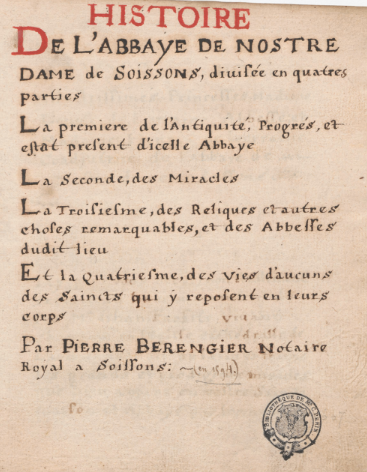 HISTOIRE
DE L'ABBAYE DE NOSTRE
DAME de SOISSONS, diuisée en quatres
parties
La premiere de l'Antiquité, Progrés, et
estat present d'icelle Abbaye
La Seconde, des Miracles
La Troisiesme, des Reliques et autres
choses remarquables, et des Abbesses
dudit lieu
Et la Quatriesme, des Vies d'aucuns
des Saincts qui y reposent en leurs
corps
Par PIERRE BERENGIER Notaire
Royal a Soissons: